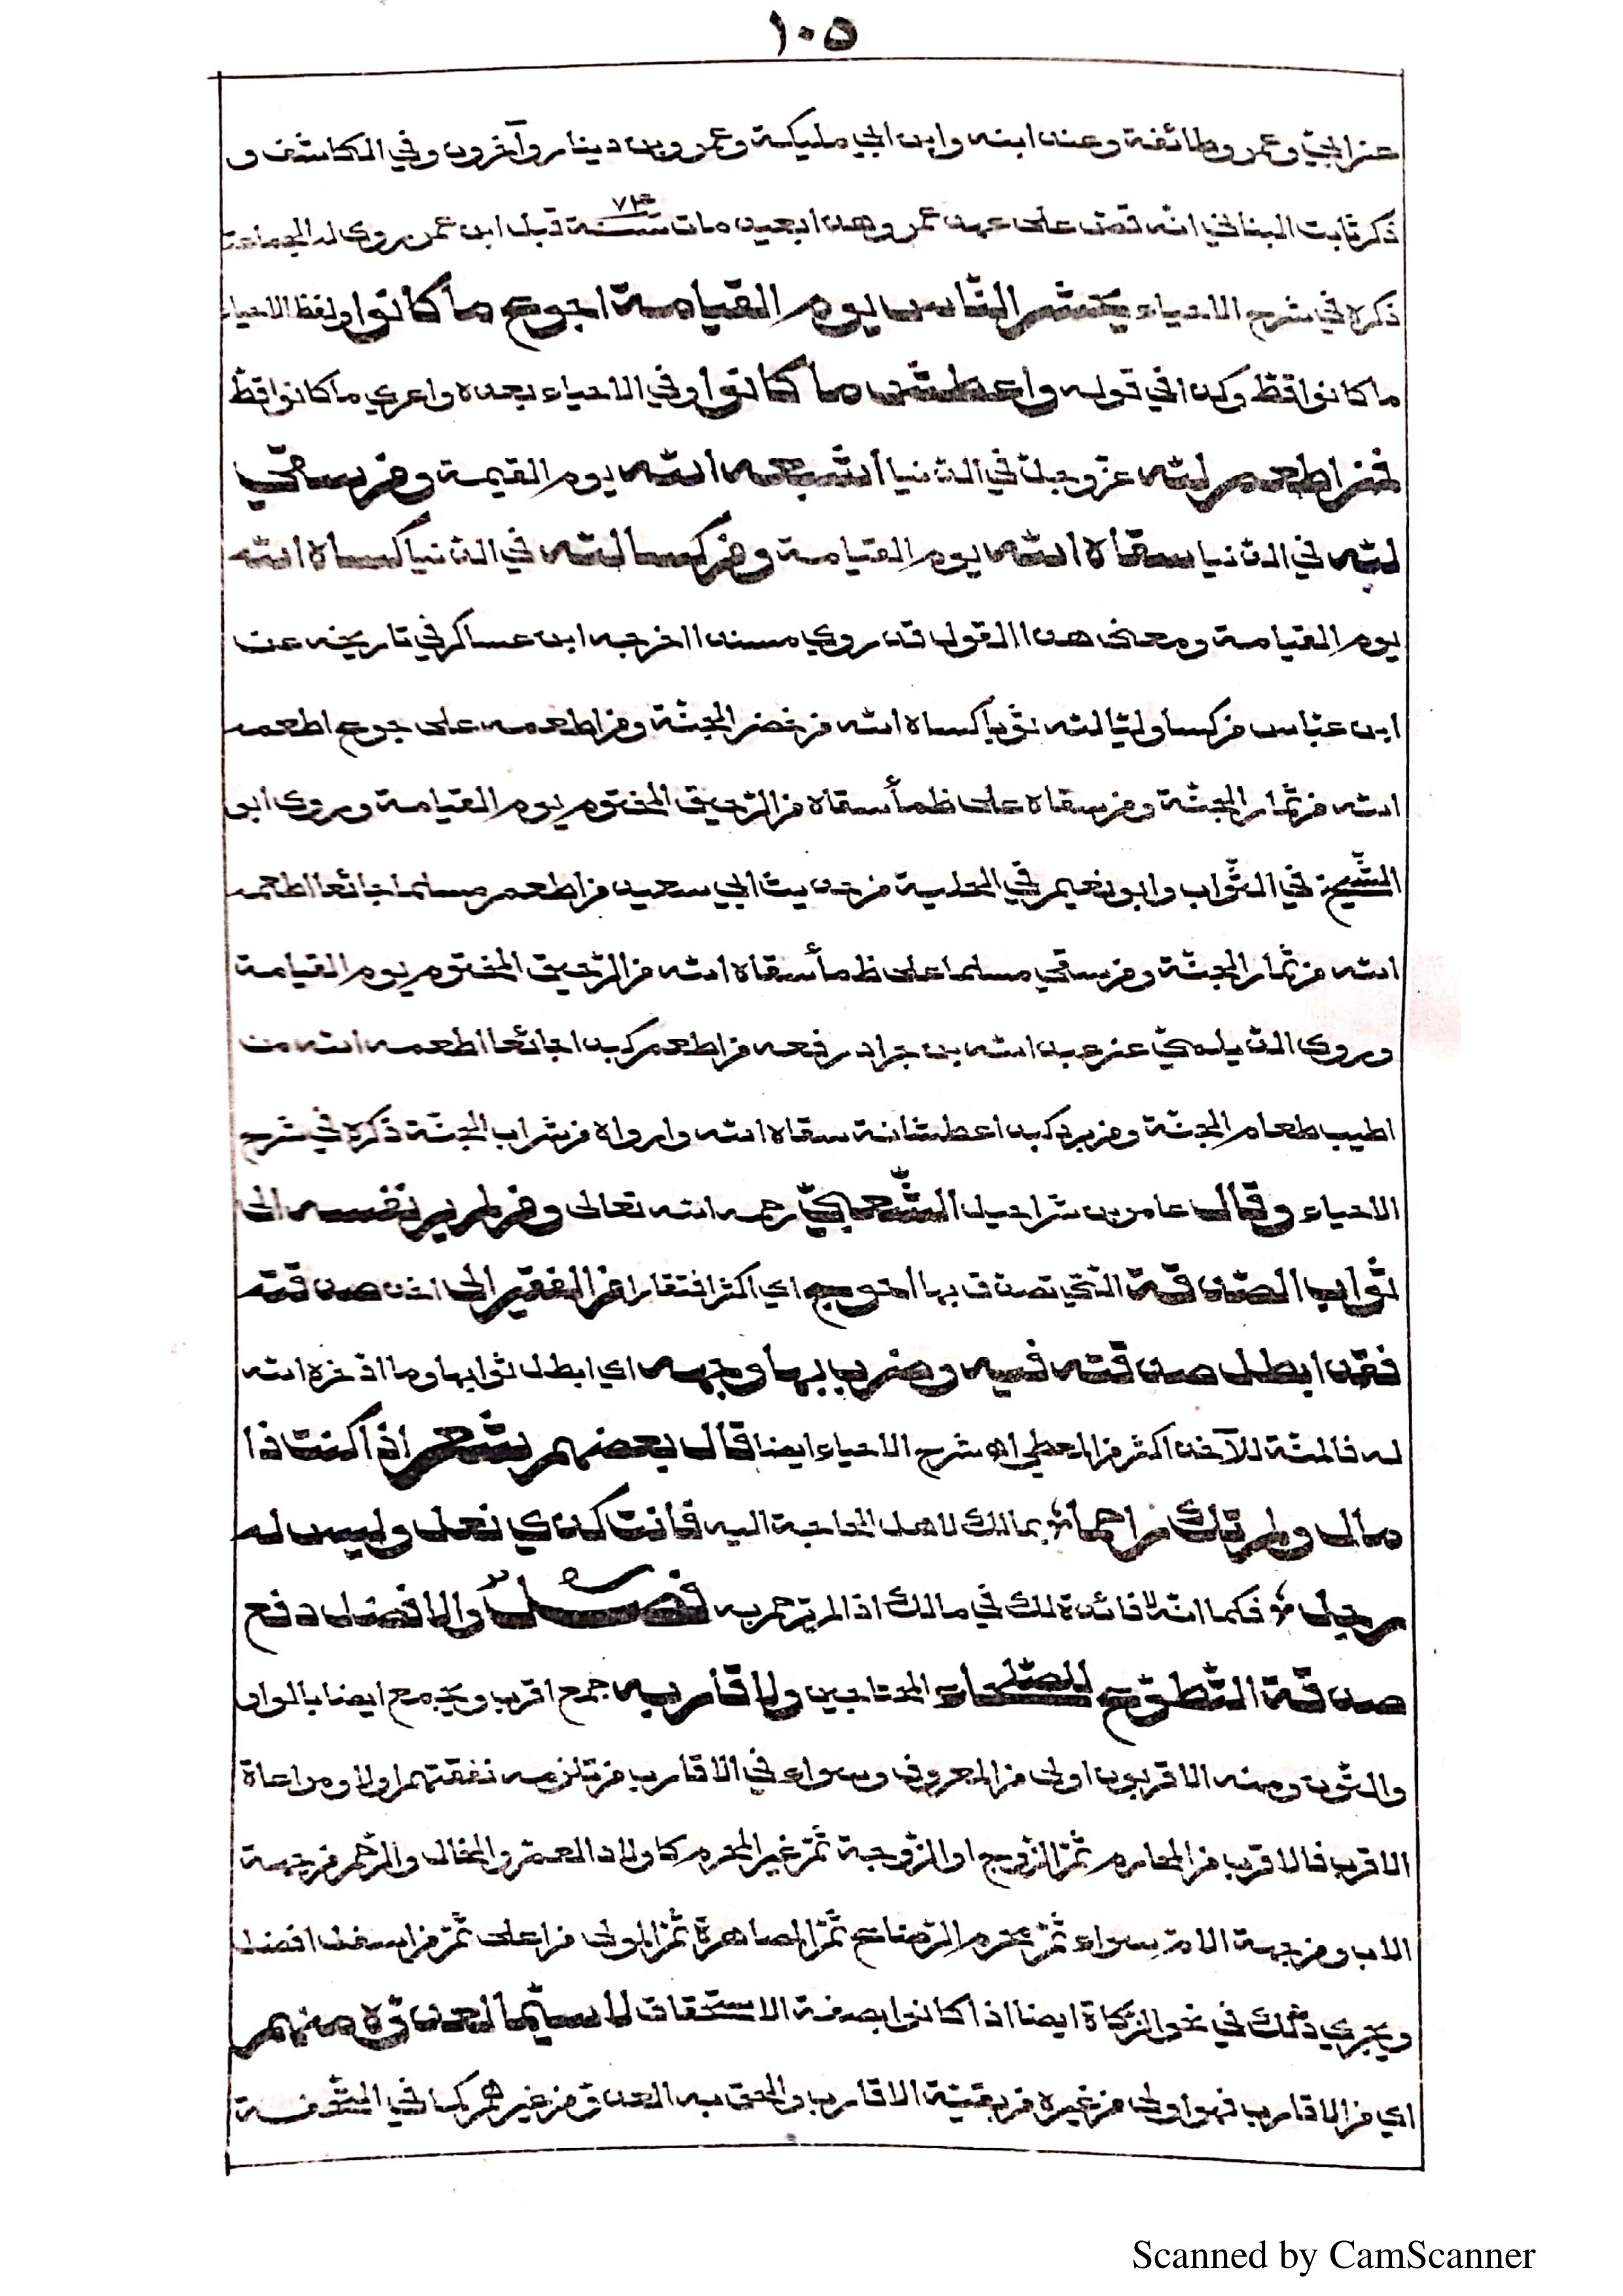 ١٠٥
عن ابي وعمر وطائفة وعنه ابنه وابن ابي مليكة وعمرو بن دينار وآخرون وفي الكاشف و
ذكر ثابت البناني انه قص على عهد عمر وهذا بعيد مات سنة ٧٤ قبل ابن عمر روى له الجماعة
ذكره في شرح الاحياء يحشر الناس يوم القيامة اجوع ما كانوا ولفظ الاحياء
ما كانوا قط وكذا في قوله واعطش ما كانوا وفي الاحياء بعده واعرى ما كانوا قط
فمن اطعم لله عز وجل في الدنيا اشبعه الله يوم القيمة ومن سقى
لله في الدنيا سقاه الله يوم القيامة ومن كسا لله في الدنيا كساه الله
يوم القيامة ومعنى هذا القول قد روي مسندا اخرجه ابن عساكر في تاريخه عن
ابن عباس من كسا وليا لله ثوبا كساه الله من خضر الجنة ومن اطعمه على جوع اطعمه
الله من ثمار الجنة ومن سقاه على ظمأ سقاه من الرحيق المختوم يوم القيامة وروى ابو
الشيخ في الثواب وابو نعيم في الحلية من حديث ابي سعيد من اطعم مسلما جائعا اطعمه
الله من ثمار الجنة ومن سقى مسلما على ظمأ سقاه الله من الرحيق المختوم يوم القيامة
وروى الديلمي عن عبد الله بن جراد رفعه من اطعم كبدا جائعا اطعمه الله من
اطيب طعام الجنة ومن برد كبدا عطشانة سقاه الله وارواه من شراب الجنة ذكره في شرح
الاحياء وقال عامر بن شراحيل الشعبي رحمه الله تعالى ومن لم ير نفسه الى
ثواب الصدقة التي تصدق بها احوج اي اكثر افتقارا من الفقير الى اخذ صدقته
فقد ابطل صدقته فيه وضرب بها وجهه اي ابطل ثوابها وما اذخره الله
له فالمنة للآخذ اكثر من المعطي اه شرح الاحياء ايضا قال بعضهم شعر اذا كنت ذا
مال ولم تك راحما بمالك لاهل الحاجة اليه فانت كذي نعل وليس له
رجل فكما انه لا فائدة لك في مالك اذا لم ترحم به فصل والافضل دفع
صدقة التطوع للصلحاء المحتاجين ولاقاربه جمع اقرب ويجمع ايضا بالواو
والنون ومنه الاقربون اولى من المعروف وسواء في الاقارب من تلزمه نفقتهم اولا ومراعاة
الاقرب فالاقرب من المحارم ثم الزوج او الزوجة ثم غير المحرم كاولاد العم والخال والرحم من جهة
الاب ومن جهة الام سواء ثم محرم الرضاع ثم المصاهرة ثم المولى من اعلى ثم من اسفل افضل
ويجري ذلك في نحو الزكاة ايضا اذا كانوا بصفة الاستحقاق لا سيما العدو منهم
اي من الاقارب فهو اولى من غيره من بقية الاقارب والحق به العدو من غيرهم كما في التحفة
Scanned by CamScanner